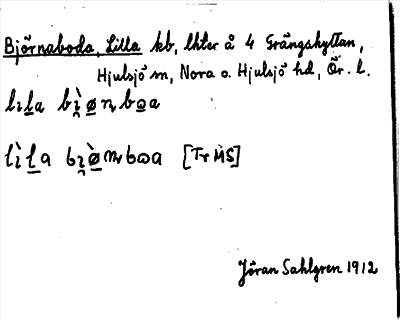 Björnaboda, Lilla kb, lhter å 4 Grängshyttan,
Hjulsjö sn, Nora o. Hjulsjö hd, Ör. l.
lıl̲a bı̯̀ø̲ꞃbɷa
lı̀l̲a bı̯ø̲̀ꞃbɷa [Tr MS]
Jöran Sahlgren 1912